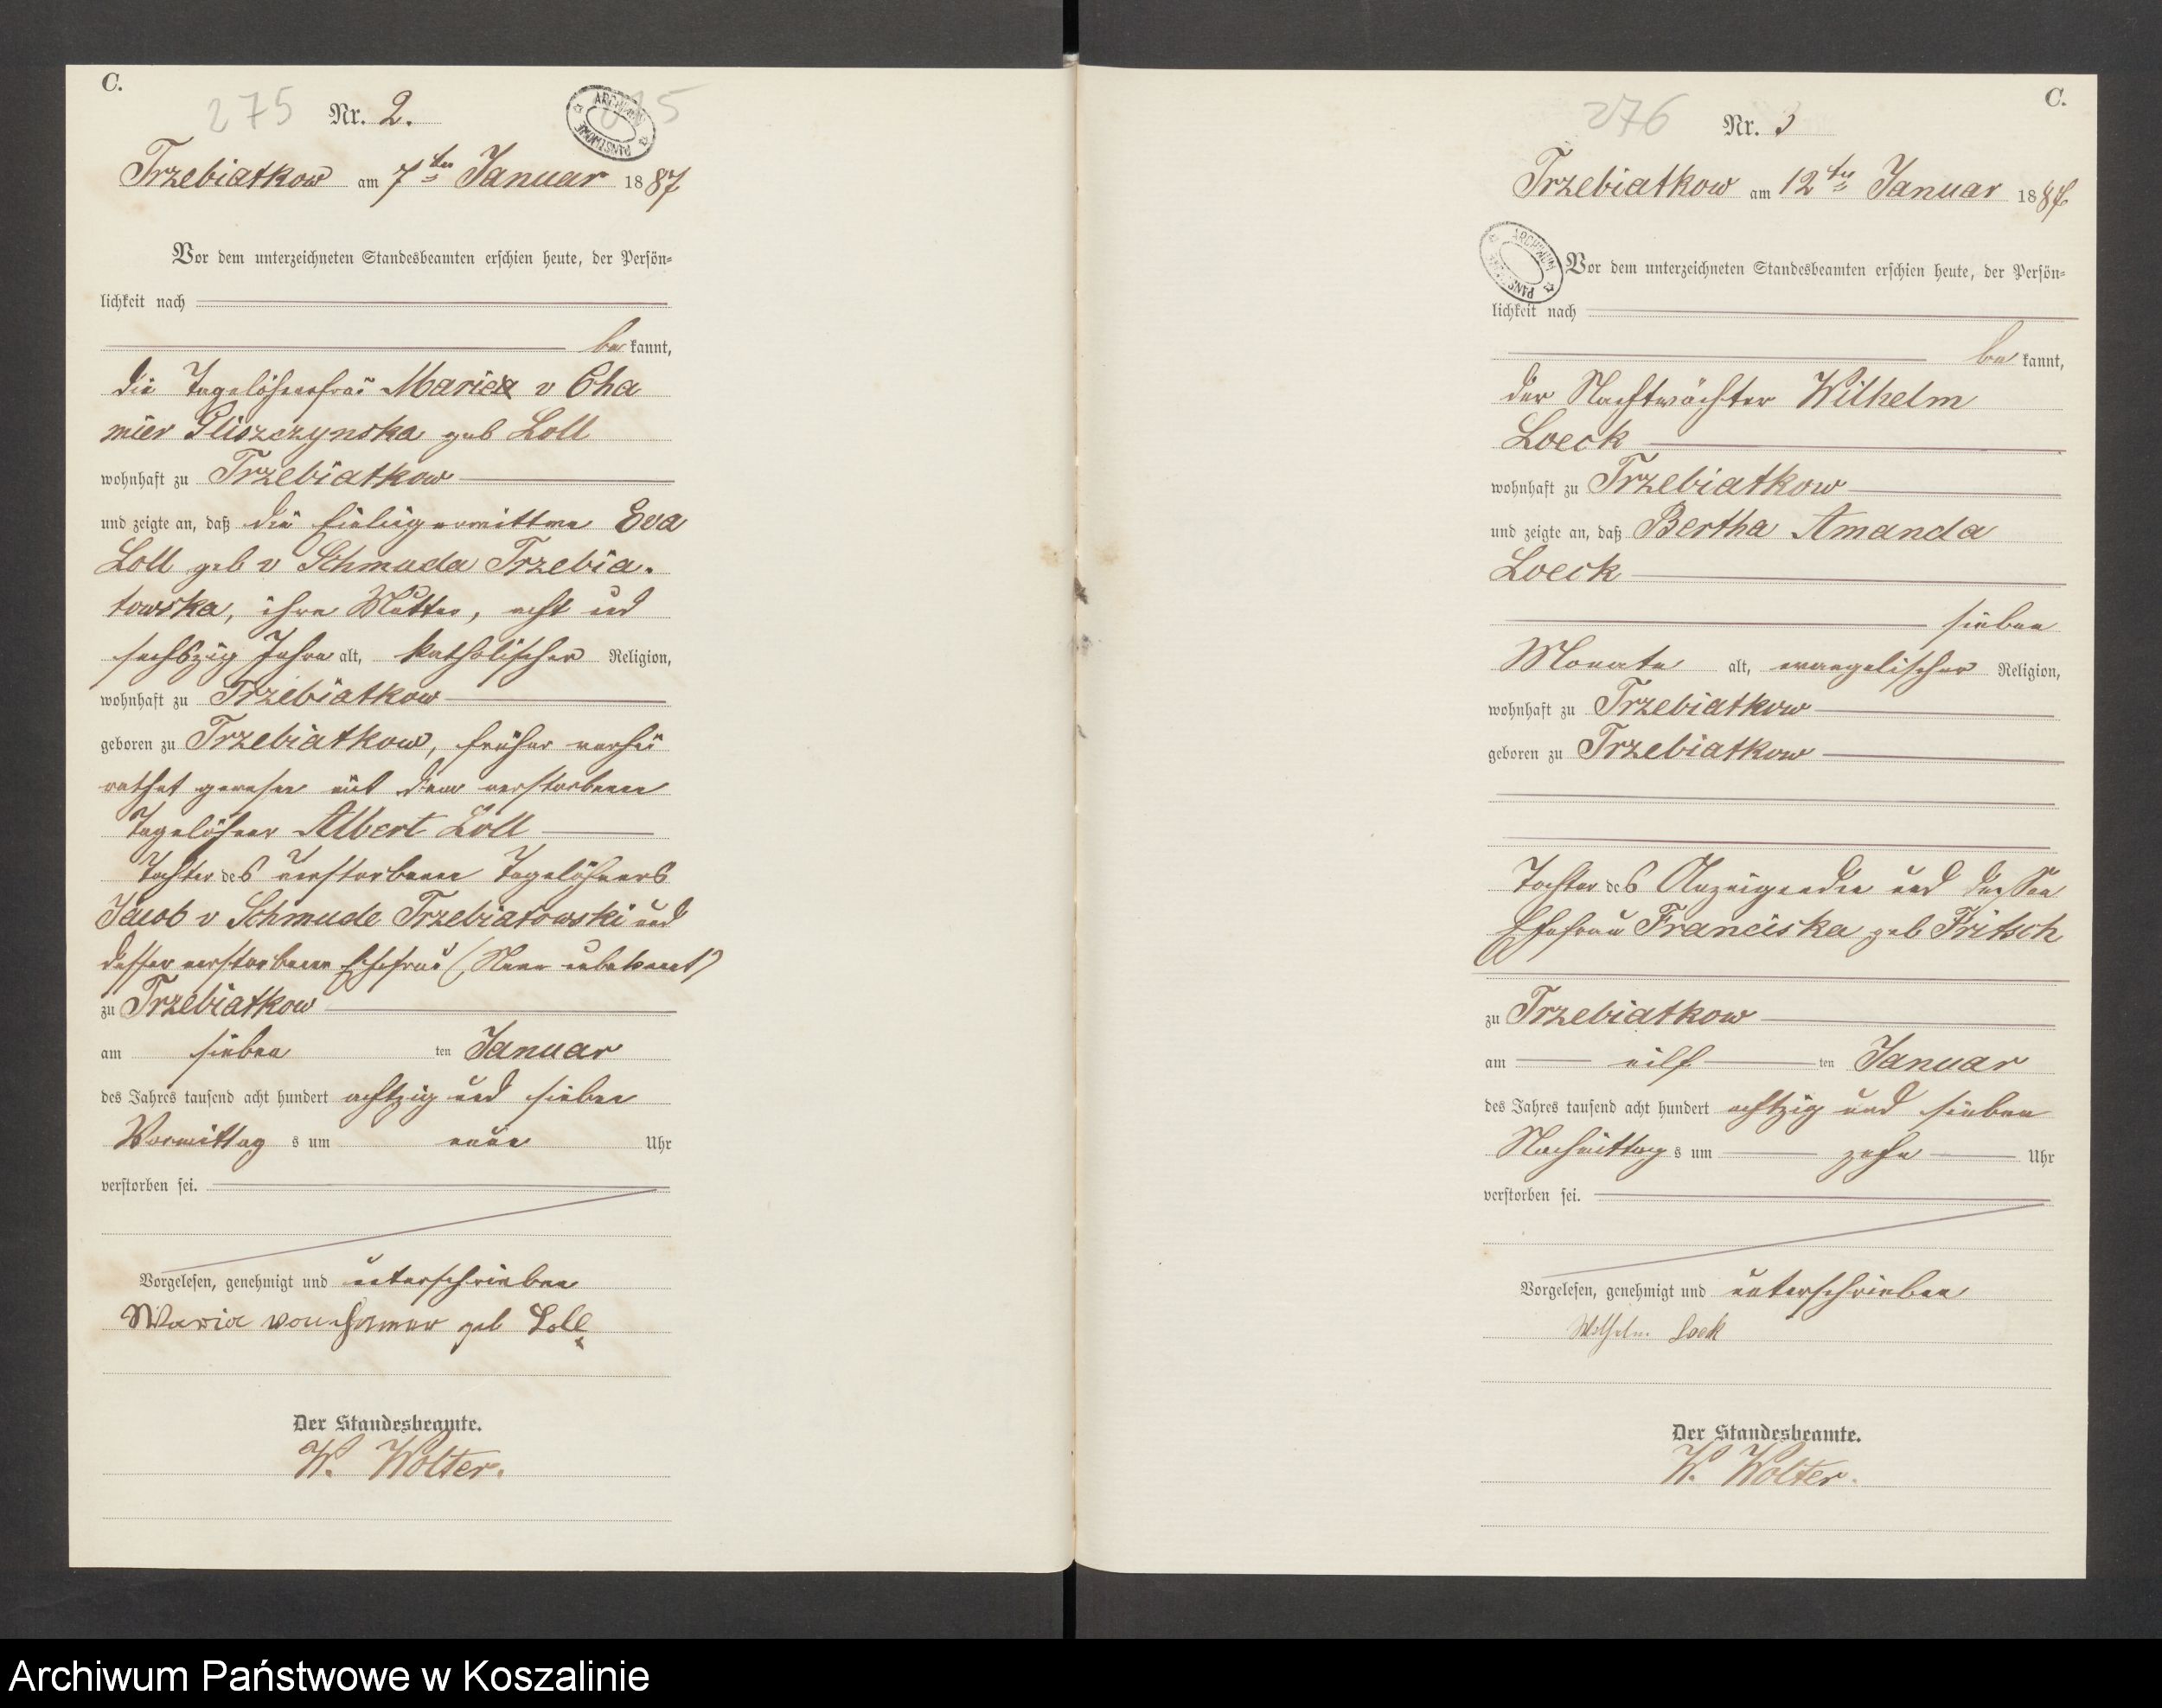 C.
275
Nr. 2.
Trzebiatkow am 7ten Januar 1887
Vor dem unterzeichneten Standesbeamten erschien heute, der Persön-
lichkeit nach
be kannt,
die Tagelöhnerfrau Marie v Cha
mier Gliszczynska geb Loll
wohnhaft zu Trzebiatkow
und zeigte an, daß die Eva
Loll geb v Schmuda Trzebia-
towska, ihre Mutter, acht und
sechszig Jahre alt, katholischer Religion,
wohnhaft zu Trzebiatkow
geboren zu Trzebiatkow, früher verhei
rathet gewesen mit dem verstorbenen
Tagelöhner Albert Loll
Tochter des verstorbenen Tagelöhners
Jacob v Schmude Trzebiatowski und
dessen verstorbenen Ehefrau (Name unbekannt)
zu Trzebiatkow
am sieben ten Januar
des Jahres tausend acht hundert achtzig und sieben
Vormittag s um neun Uhr
verstorben sei.
Vorgelesen, genehmigt und unterschrieben
Maria von geb Loll
Der Standesbeamte.
W. Wolter.
C.
276
Nr. 3
Trzebiatkow am 12ten Januar 1887
Vor dem unterzeichneten Standesbeamten erschien heute, der Persön-
lichkeit nach
be kannt,
der Nachtwächter Wilhelm
Loeck
wohnhaft zu Trzebiatkow
und zeigte an, daß Bertha Amanda
Loeck
sieben
Monate alt, evangelischer Religion,
wohnhaft zu Trzebiatkow
geboren zu Trzebiatkow
Tochter des Anzeigenden und dessen
Ehefrau Franciska geb Fritsch
zu Trzebiatkow
am eilf ten Januar
des Jahres tausend acht hundert achtzig und sieben
Nachmittag s um zehn Uhr
verstorben sei.
Vorgelesen, genehmigt und unterschrieben
Wilhelm Loek
Der Standesbeamte.
W. Wolter.
Archiwum Państwowe w Koszalinie